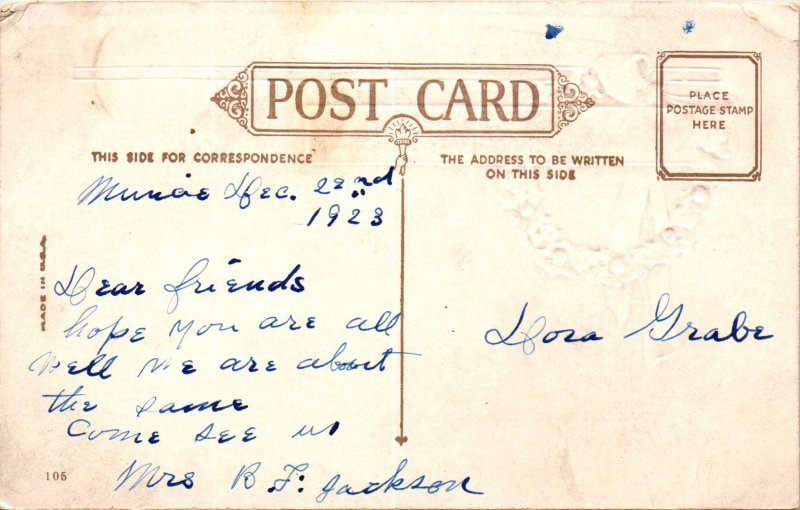 POST CARD
PLACE
POSTAGE STAMP
HERE
THIS SIDE FOR CORRESPONDENCE
THE ADDRESS TO BE WRITTEN
ON THIS SIDE
Muncie Dec. 22nd
1923
MADE IN U.S.A.
Dear friends
hope you are all
well we are about
the same
Come see us
Mrs B F. Jackson
Dora Grabe
105